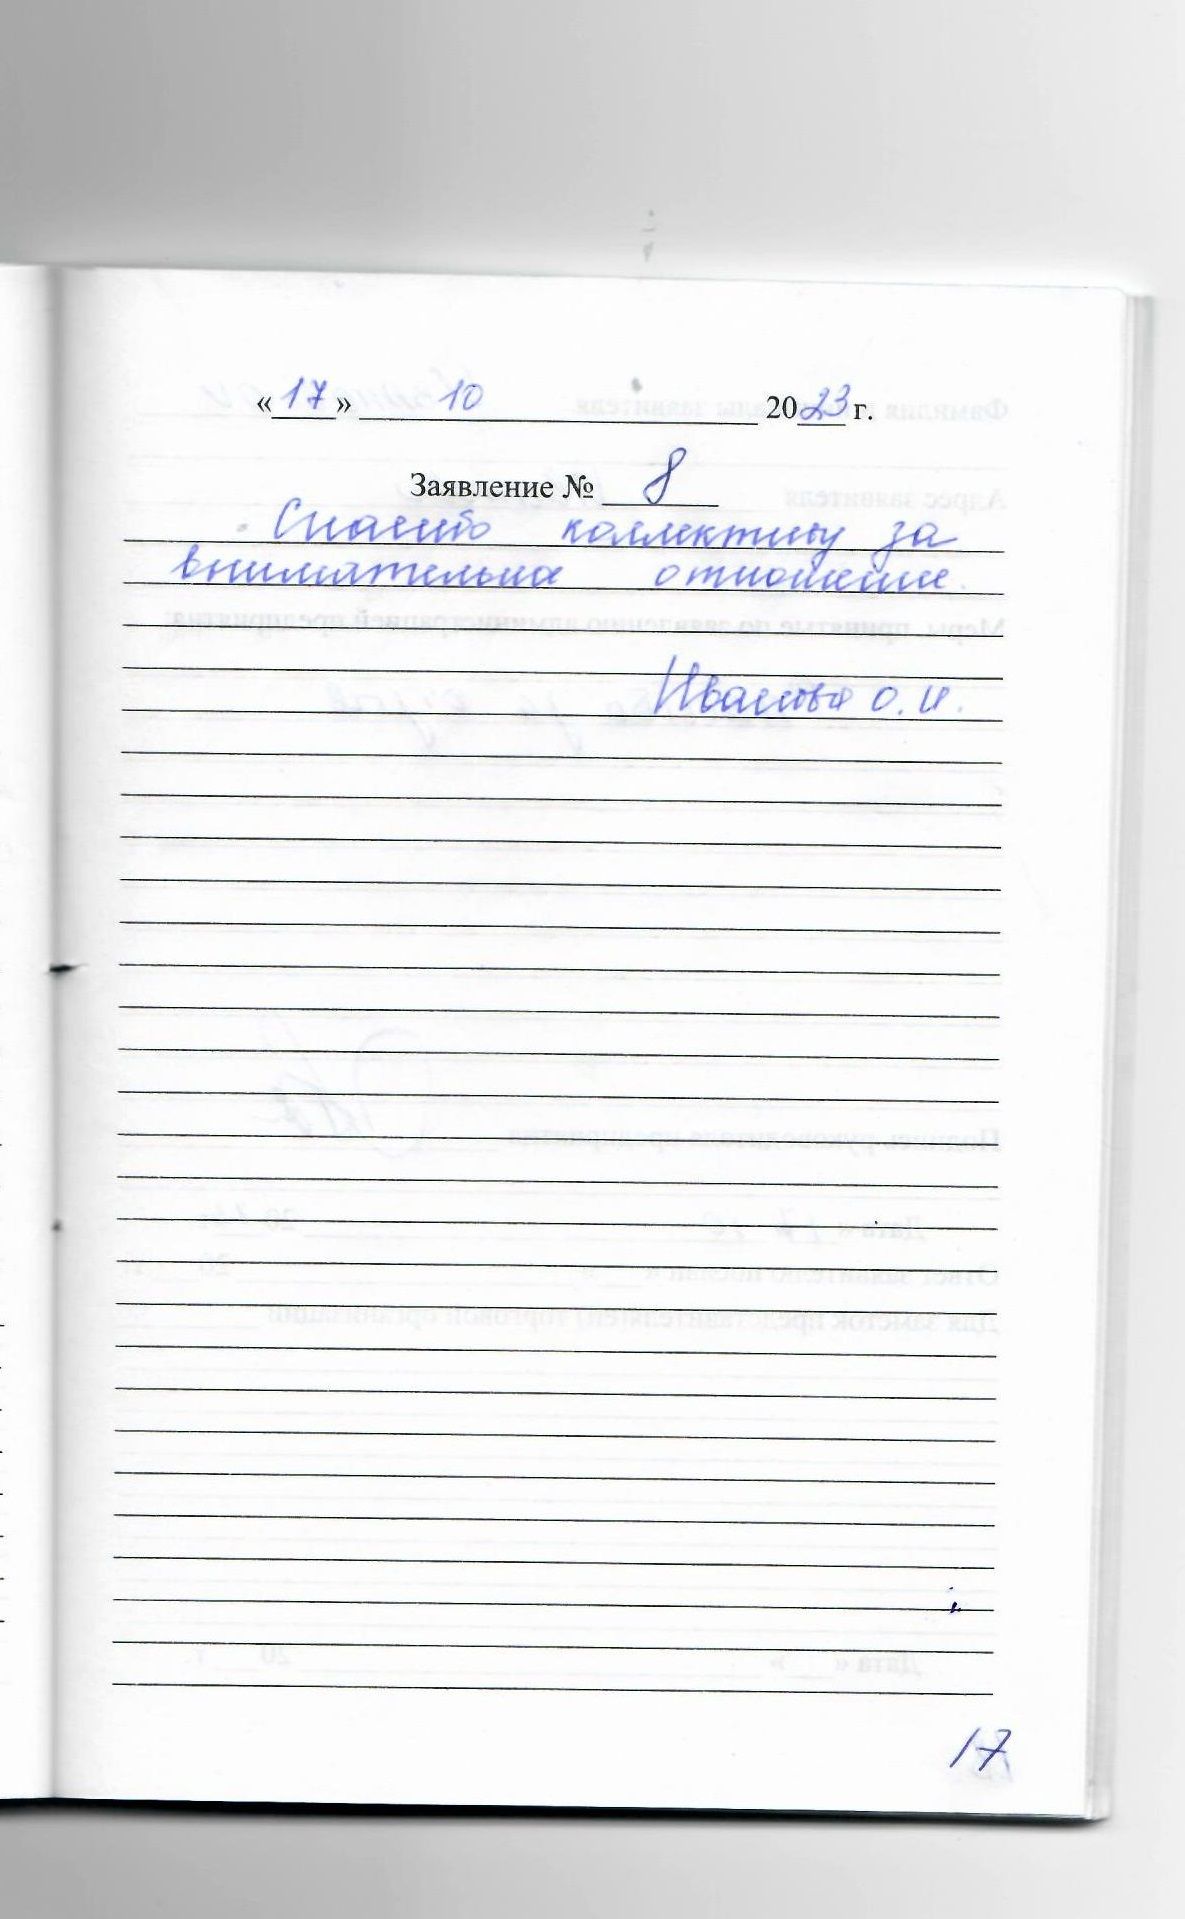 «17» 10 2023 г.
Заявление № 8
Спасибо коллективу за
внимательное отношение.
Иванова О.И.
17